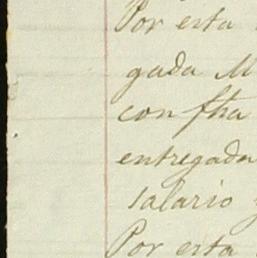 Por esta
gada M
con fha
entregada
salario y
Por esta